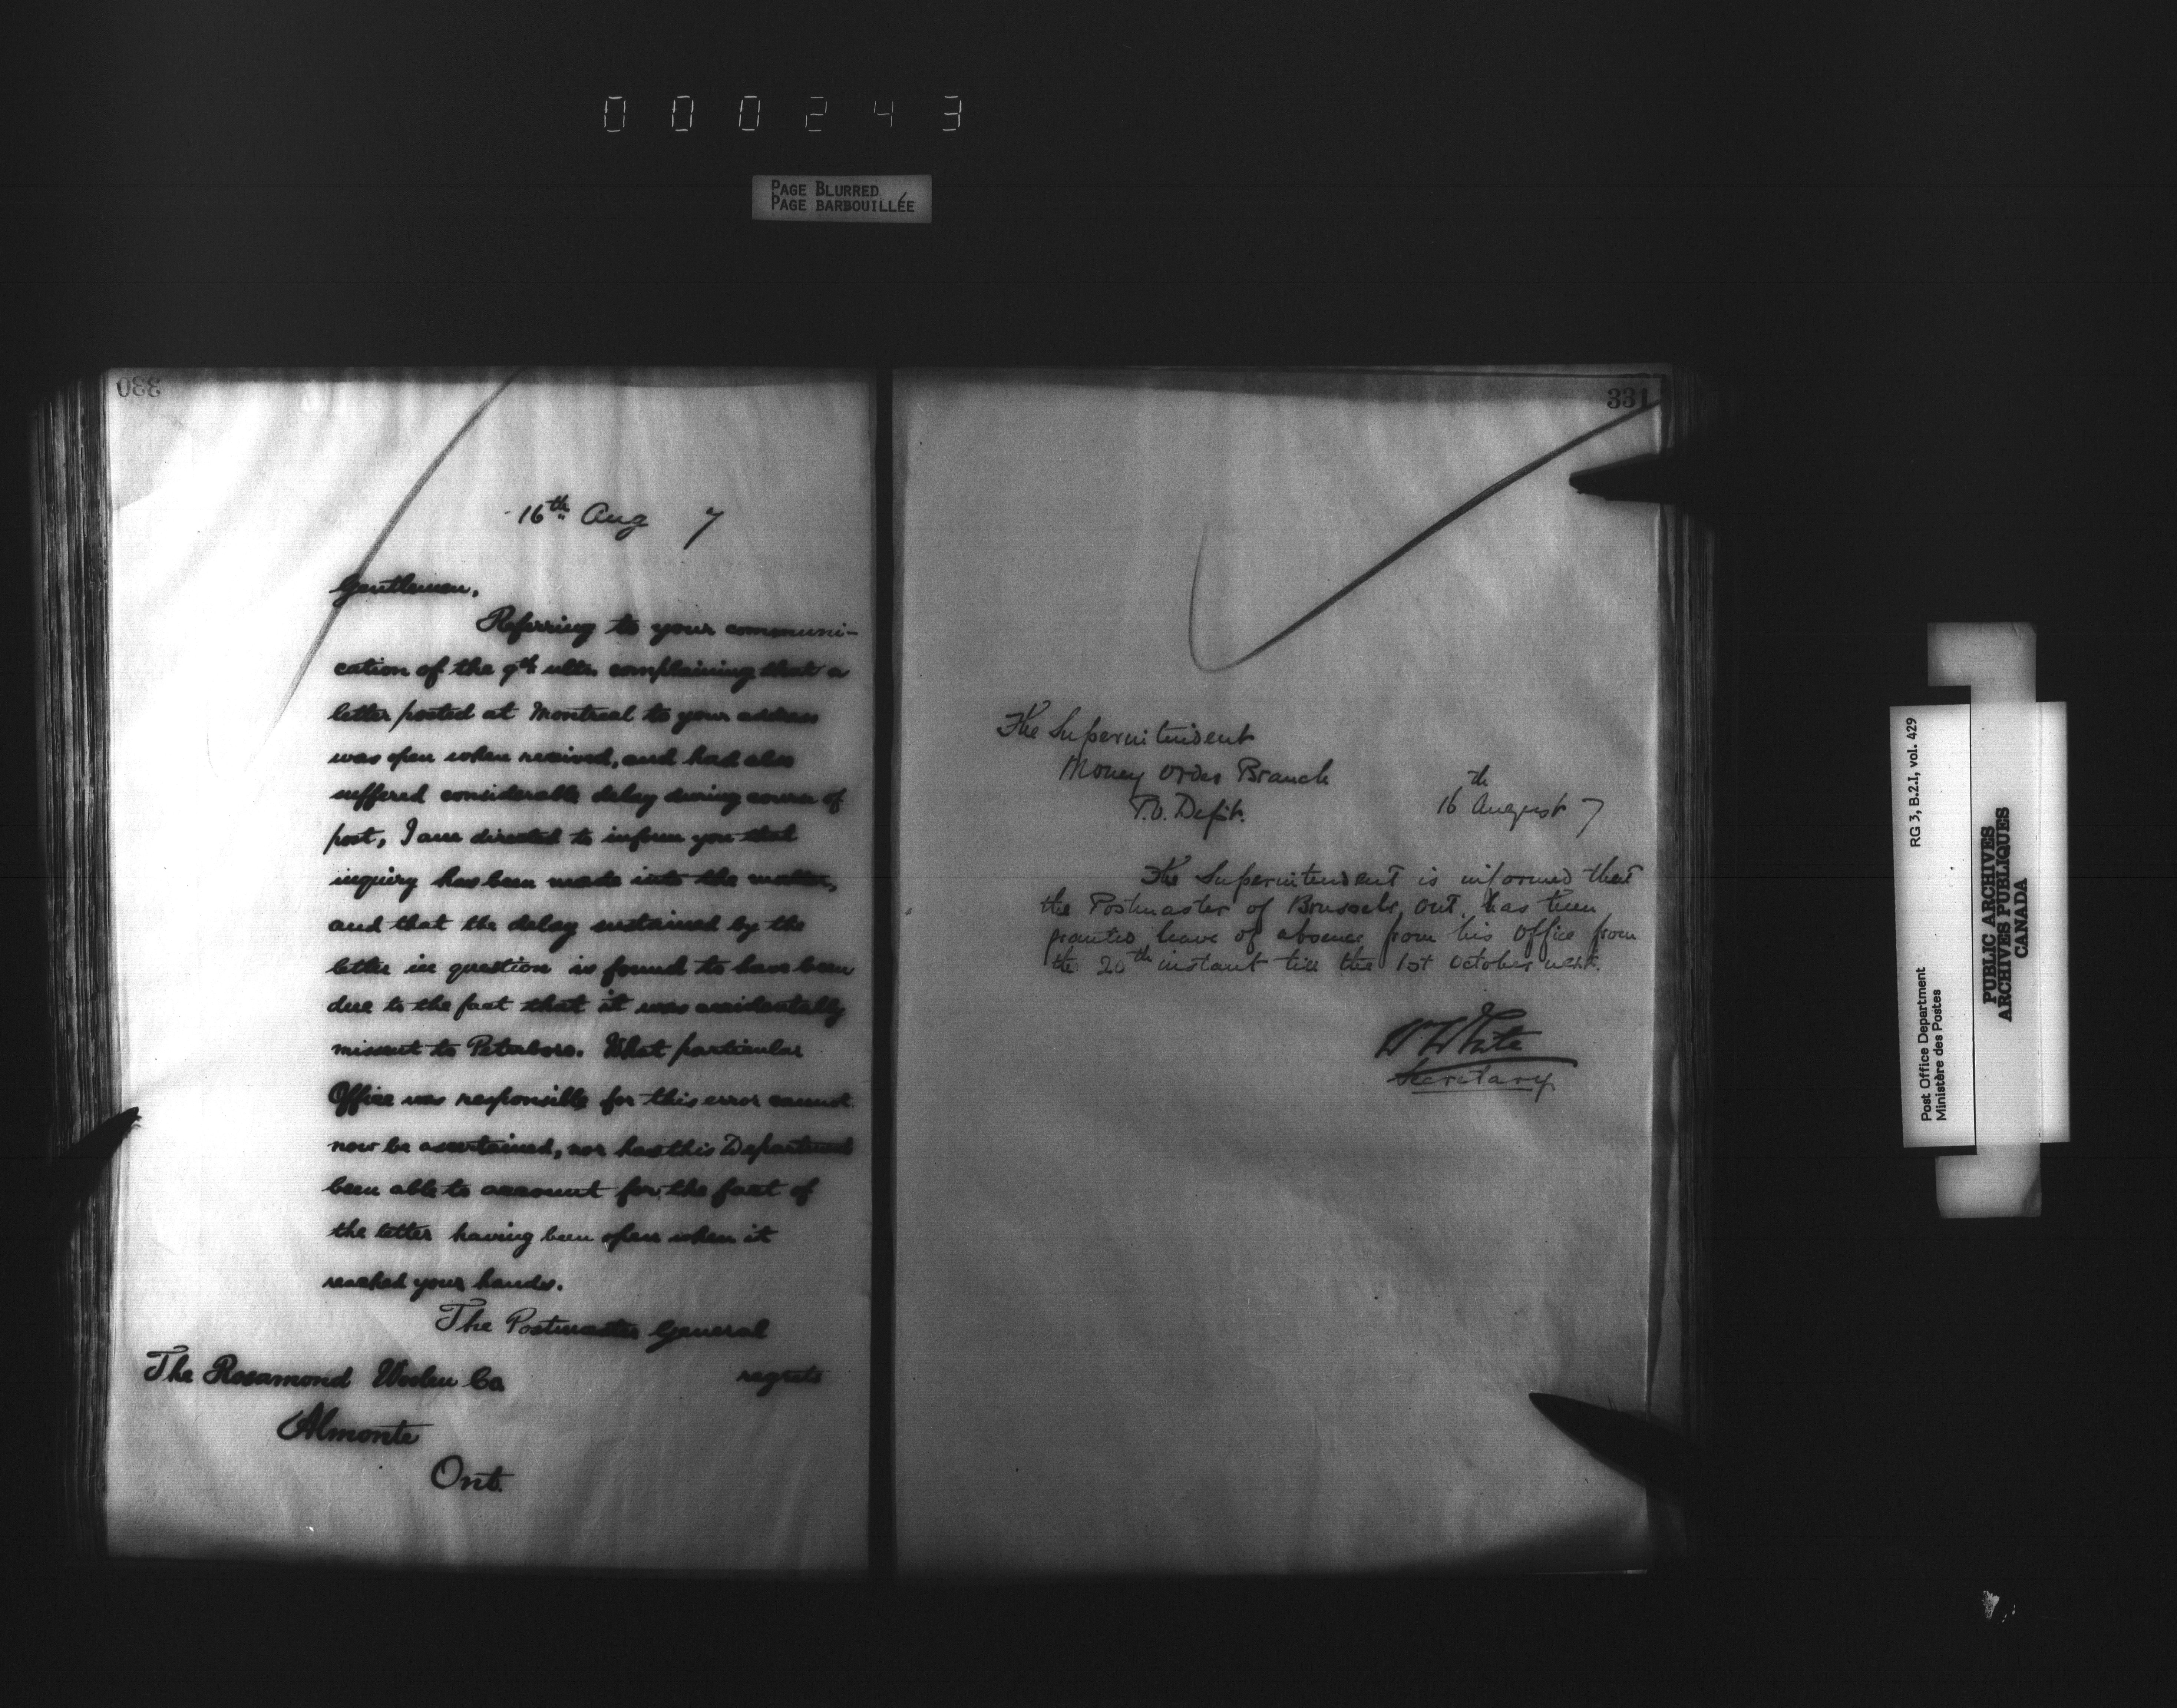 000243
PAGE BLURRED
PAGE BARBOUILLÉE
330
16th Aug 7
Gentlemen,
Referring to your communi-
cation of the 9th ulto. complaining that a
letter posted at Montreal to your address
was open when received, and had also
suffered considerable delay during course of
post, I am directed to inform you that
inquiry has been made into the matter,
and that the delay sustained by the
letter in question is found to have been
due to the fact that it was accidentally
missent to Peterboro. What particular
Office was responsible for this error cannot
now be ascertained, nor has this Department
been able to account for the fact of
the letter having been open when it
reached your hands.
The Postmaster General
regrets
The Rosamond Woolen Co
Almonte
Ont.
331
The Superintendent
Money Order Branch
P.O. Dept.
16th August 7
The Superintendent is informed that
the Postmaster of Brussels, Ont. has been
granted leave of absence from his Office from
the 20th instant till the 1st October next.
W White
Secretary
RG 3, B.2.1, vol. 429
Post Office Department
Ministère des Postes
PUBLIC ARCHIVES
ARCHIVES PUBLIQUES
CANADA